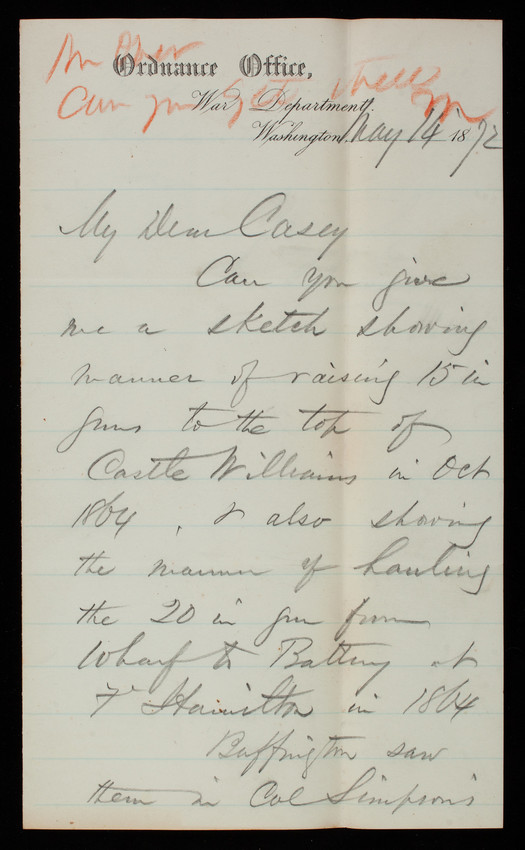 Ordnance Office,
War Department,
Washington, May 14 1872
Can you get these
My Dear Casey
Can you give
me a sketch showing
manner of raising 15 in
guns to the top of
Castle Williams in Oct
1864, & also showing
the manner of hauling
the 20 in gun from
Wharf to Battery at
Ft Hamilton in 1864
Buffington saw
them in Col Simpson's